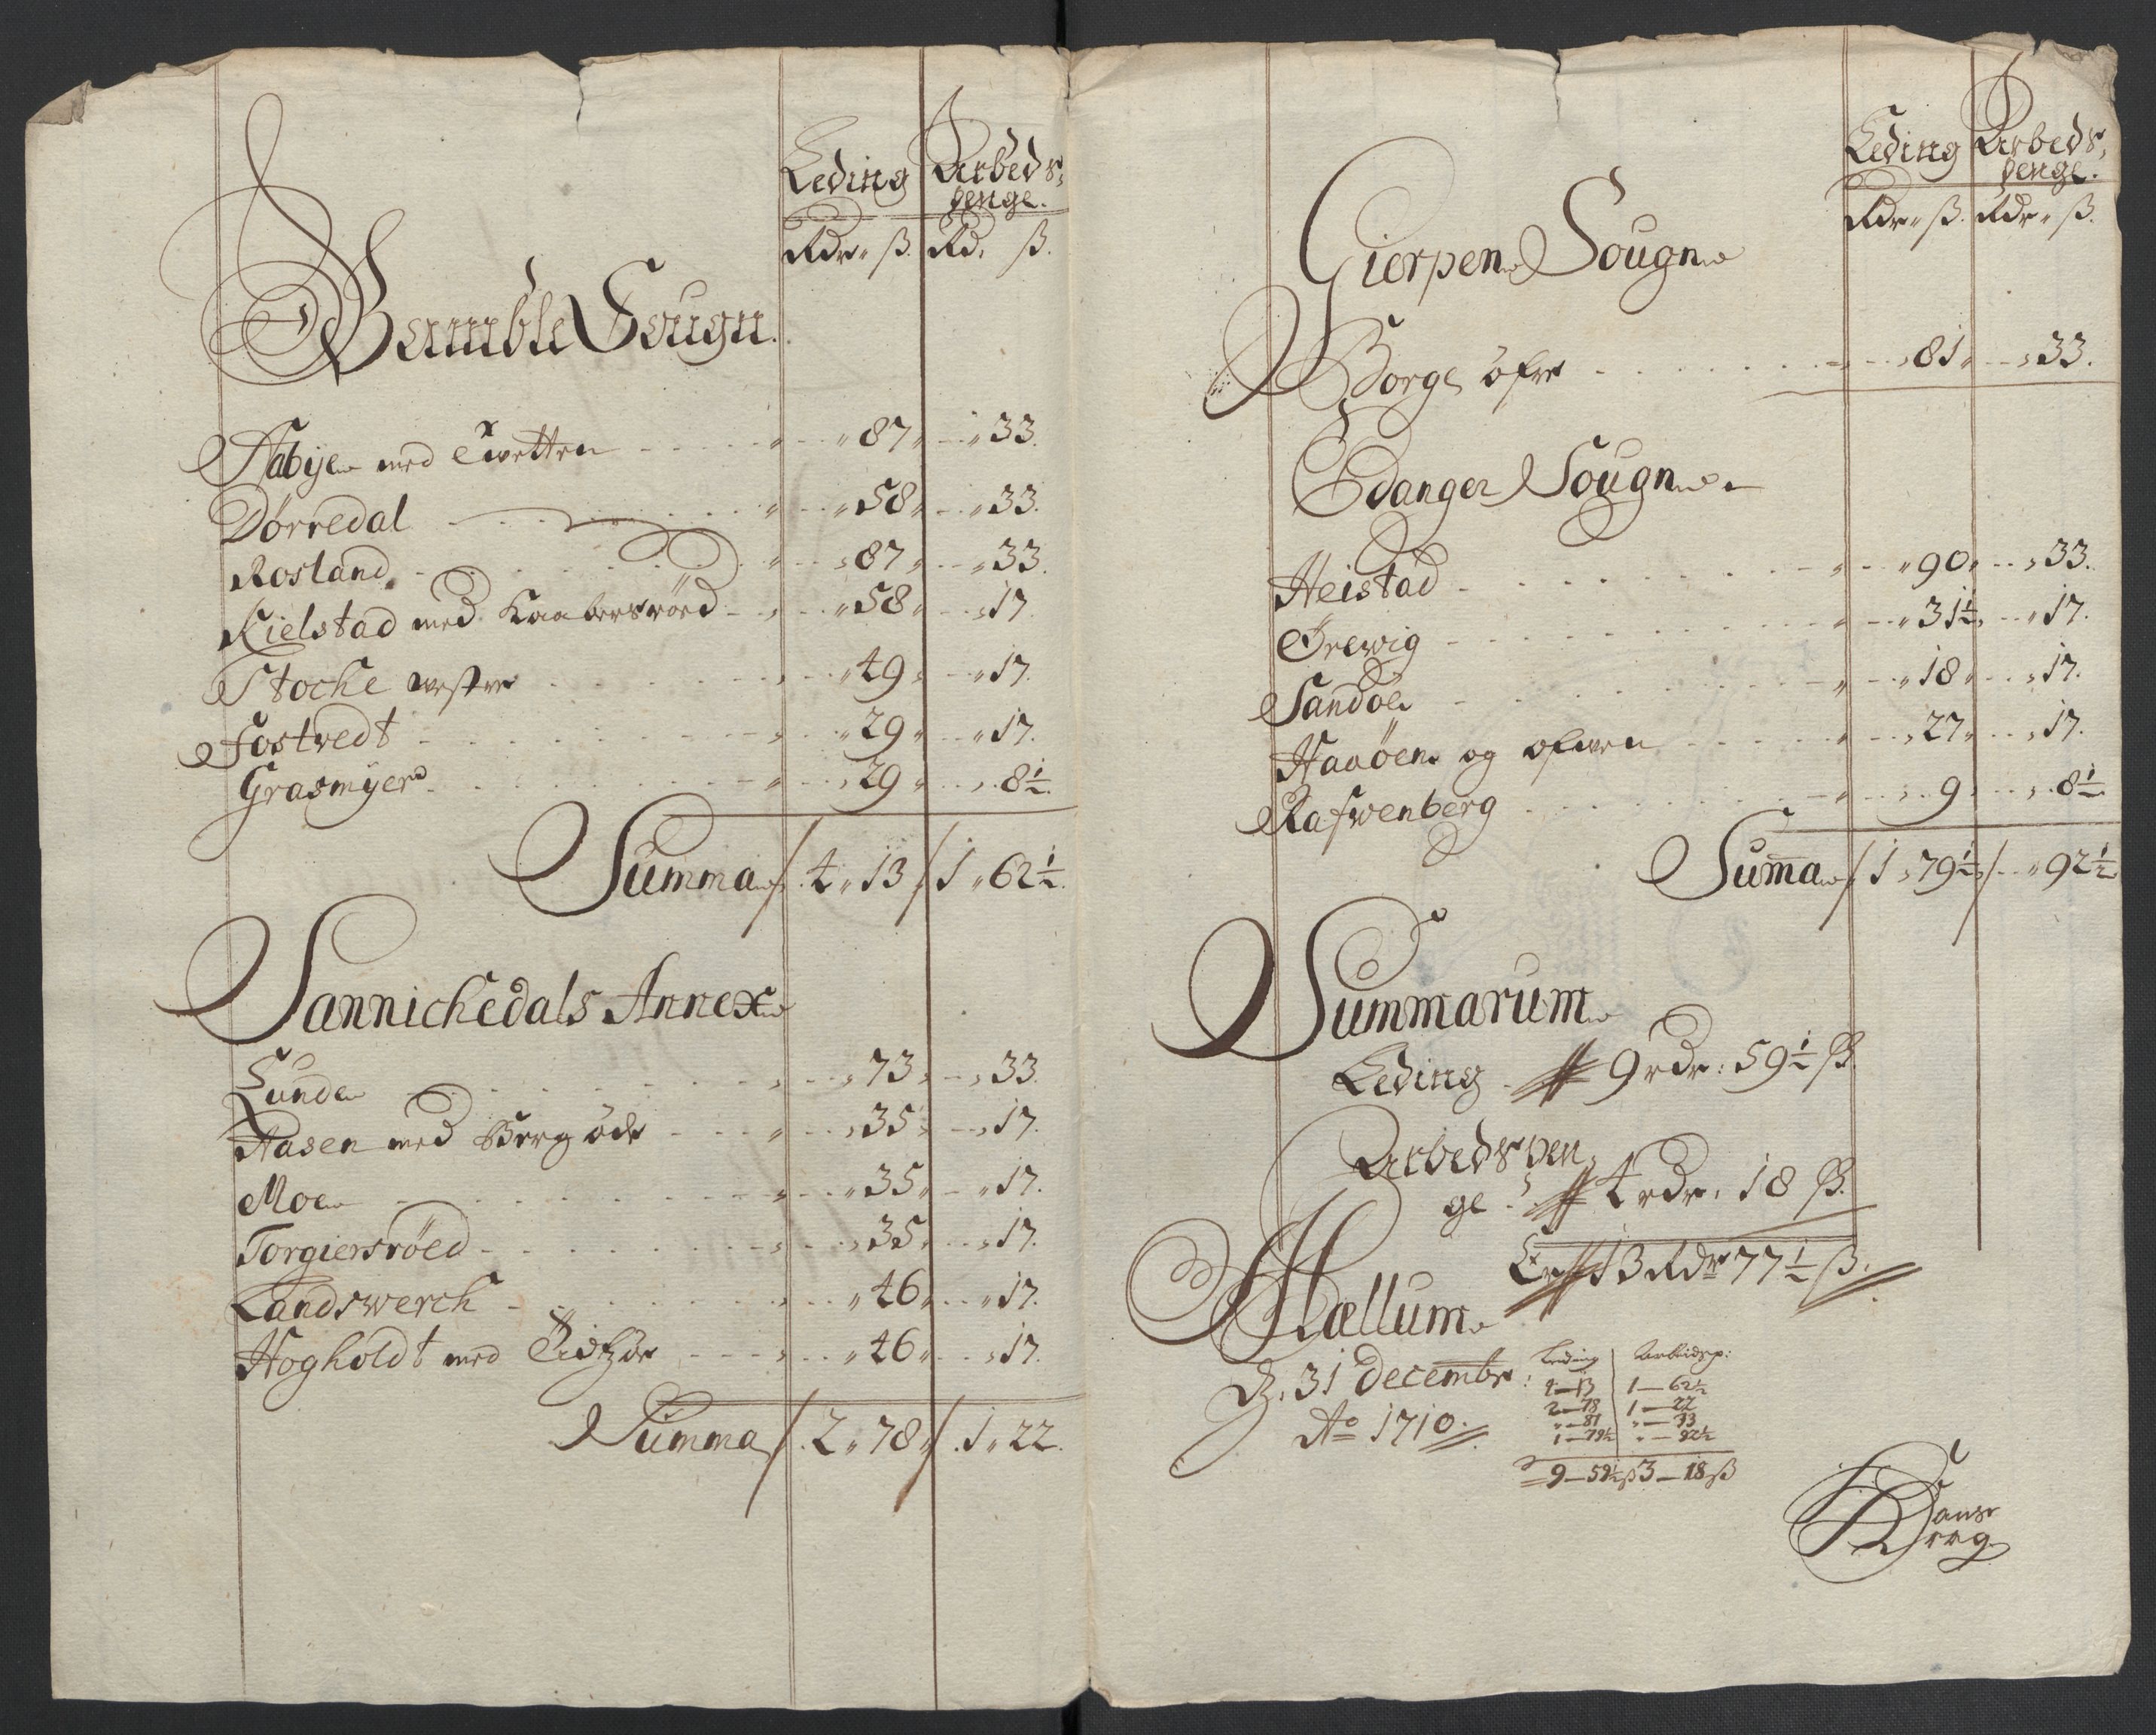 Leding Arbeds
penge.
Rdr. ß. Rd. ß.
Bamble Sougn.
Aabye med Twetten 87 33.
Dørredal 58 33.
Rosland 87 33.
Kielstad med Kaabersröed 58 17.
Stocke westre 49 17.
Fostvedt 29 17.
Grasmyer 29 8½.
Summa 4 13 1 62½.
Sannichedals Annex
Lunde 73 33.
Aasen med Berg öde 35 17.
Moe 35 17.
Torgiersröed 35 17.
Landswerck 46 17.
Hogholdt med 46 17.
Summa 2 78 1 22.
Leding Arbeds
penge.
Rdr. ß. Rdr. ß.
Gierpen Sougn
Borge öfre 81 33.
Edanger Sougn
Heistad 90 33.
Ørewig 31½ 17.
Sandöe 18 17.
Haaöen og 27 17.
Rafwenberg 9 8½
Suma 1 79½ 92½
Summarum
Leding 9 rdr: 59½ ß.
Arbeds pen
ge 4 rdr. 18 ß.
Er 13 Rdr 77½ ß.
Hællum
d. 31 Decembr:
Ao 1710.
Leding Arbeidsp:
4—13 1—62½
2—78 1—22
"—81 "—33
1—79½ "—92½
9—59½ ß 3—18 ß
Hans
Krag